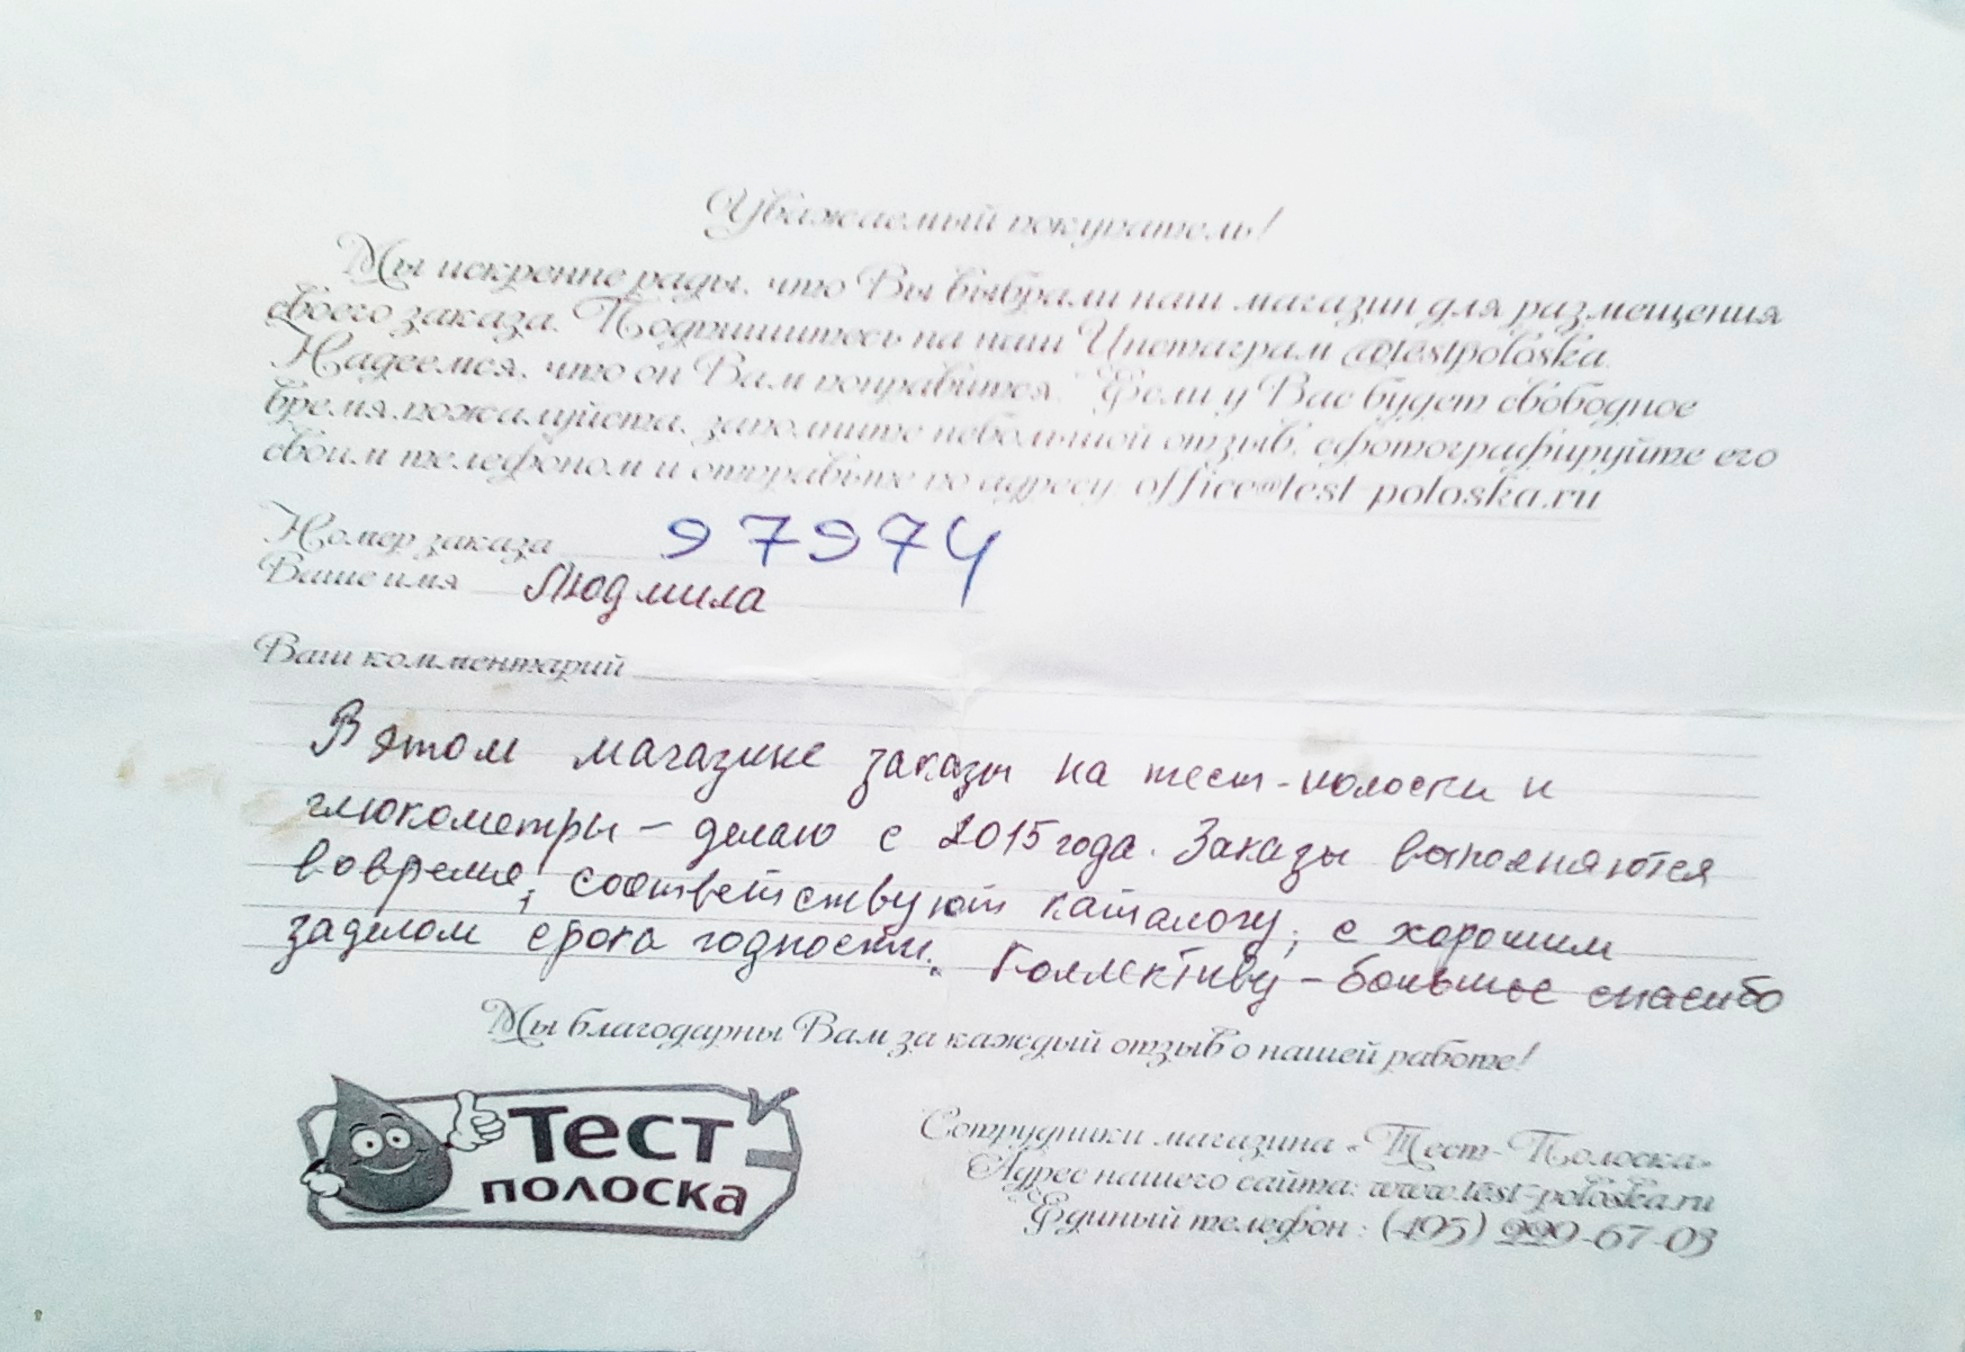 Уважаемый покупатель!
Мы искренне рады, что Вы выбрали наш магазин для размещения
своего заказа. Подпишитесь на наш Инстаграм @testpoloska.
Надеемся, что он Вам понравится. Если у Вас будет свободное
время, пожалуйста, заполните небольшой отзыв, сфотографируйте его
своим телефоном и отправьте по адресу: office@test-poloska.ru
Номер заказа 97974
Ваше имя Людмила
Ваш комментарий
В этом магазине заказы на тест-полоски и
глюкометры – делаю с 2015 года. Заказы выполняются
вовремя; соответствуют каталогу; с хорошим
заделом срока годности. Коллективу – большое спасибо
Мы благодарны Вам за каждый отзыв о нашей работе!
Тест
полоска
Сотрудники магазина «Тест-Полоска»
Адрес нашего сайта: www.test-poloska.ru
Единый телефон: (495) 229-67-03